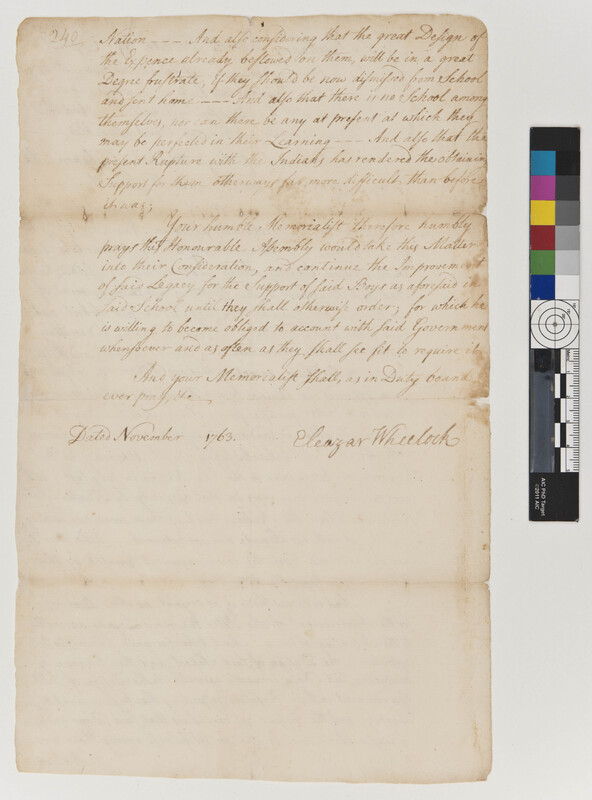 242
Nation --- And also considering that the great Design of
the Expence already bestowed on them, will be in a great
Degree frustrate, if they should be now dismissed from School
and sent home --- And also that there is no School among
themselves, nor can there be any at present at which they
may be perfected in their Learning --- And also that the
present Rupture with the Indians has rendered the obtainin
Support for them otherways far more difficult than before
it was;
Your humble Memorialist therefore humbly
prays this Honourable Assembly would take this Matter
into their Consideration, and continue the Improvement
of said Legacy for the Support of said Boys as aforsaid in
said School until they shall otherwise order; for which he
is willing to become obliged to account with said Government
whensoever and as often as they shall see fit to require it.
And your Memorialist shall, as in Duty bound
ever pray, &c.
Dated November 1763.
Eleazar Wheelock
AIC PhD Target
©2011 AIC